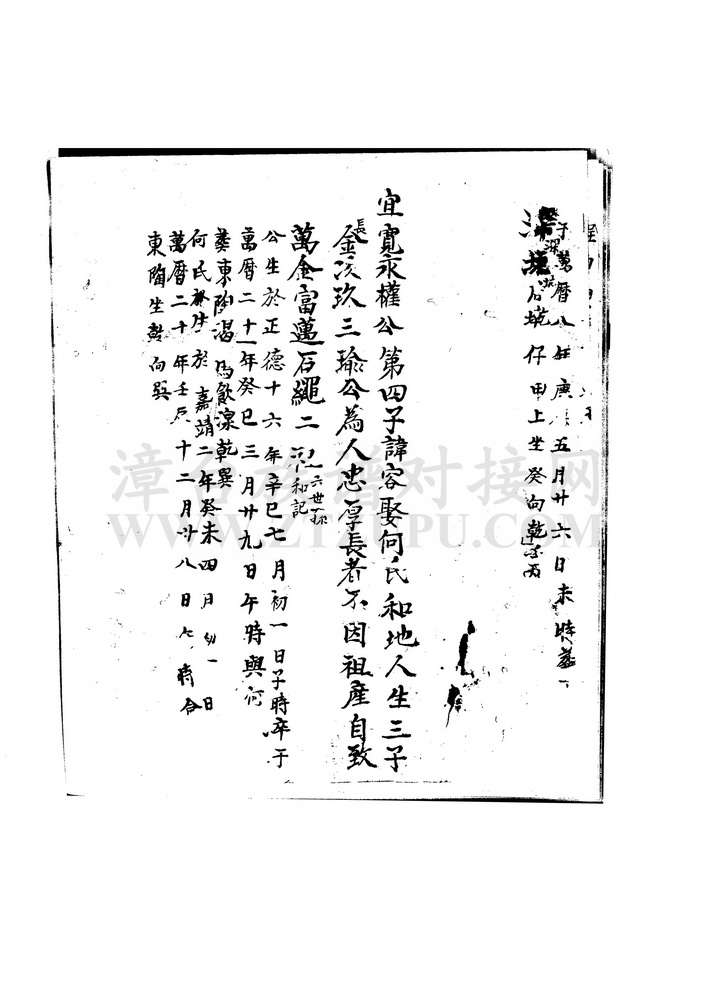 子萬曆八年庚 五月廿六日未時葬
深 坑仔甲上坐癸向乾
宜寬永權公第四子諱容娶何氏和地人生三子
長金次玖三瑜公為人忠厚長者不因祖產自致
萬金富邁石繩二 六世孫和記
公生於正德十六年辛巳七月初一日子時卒于
萬曆二十一年癸巳三月廿九日午時與何
葬東陶渴馬飲湶乾巽
何氏 生於嘉靖二年癸未四月初一日
萬曆二十年壬辰十二月廿八日 時合
東陶坐乾向巽
漳台族谱对接网
WWW.ZTZUPU.COM